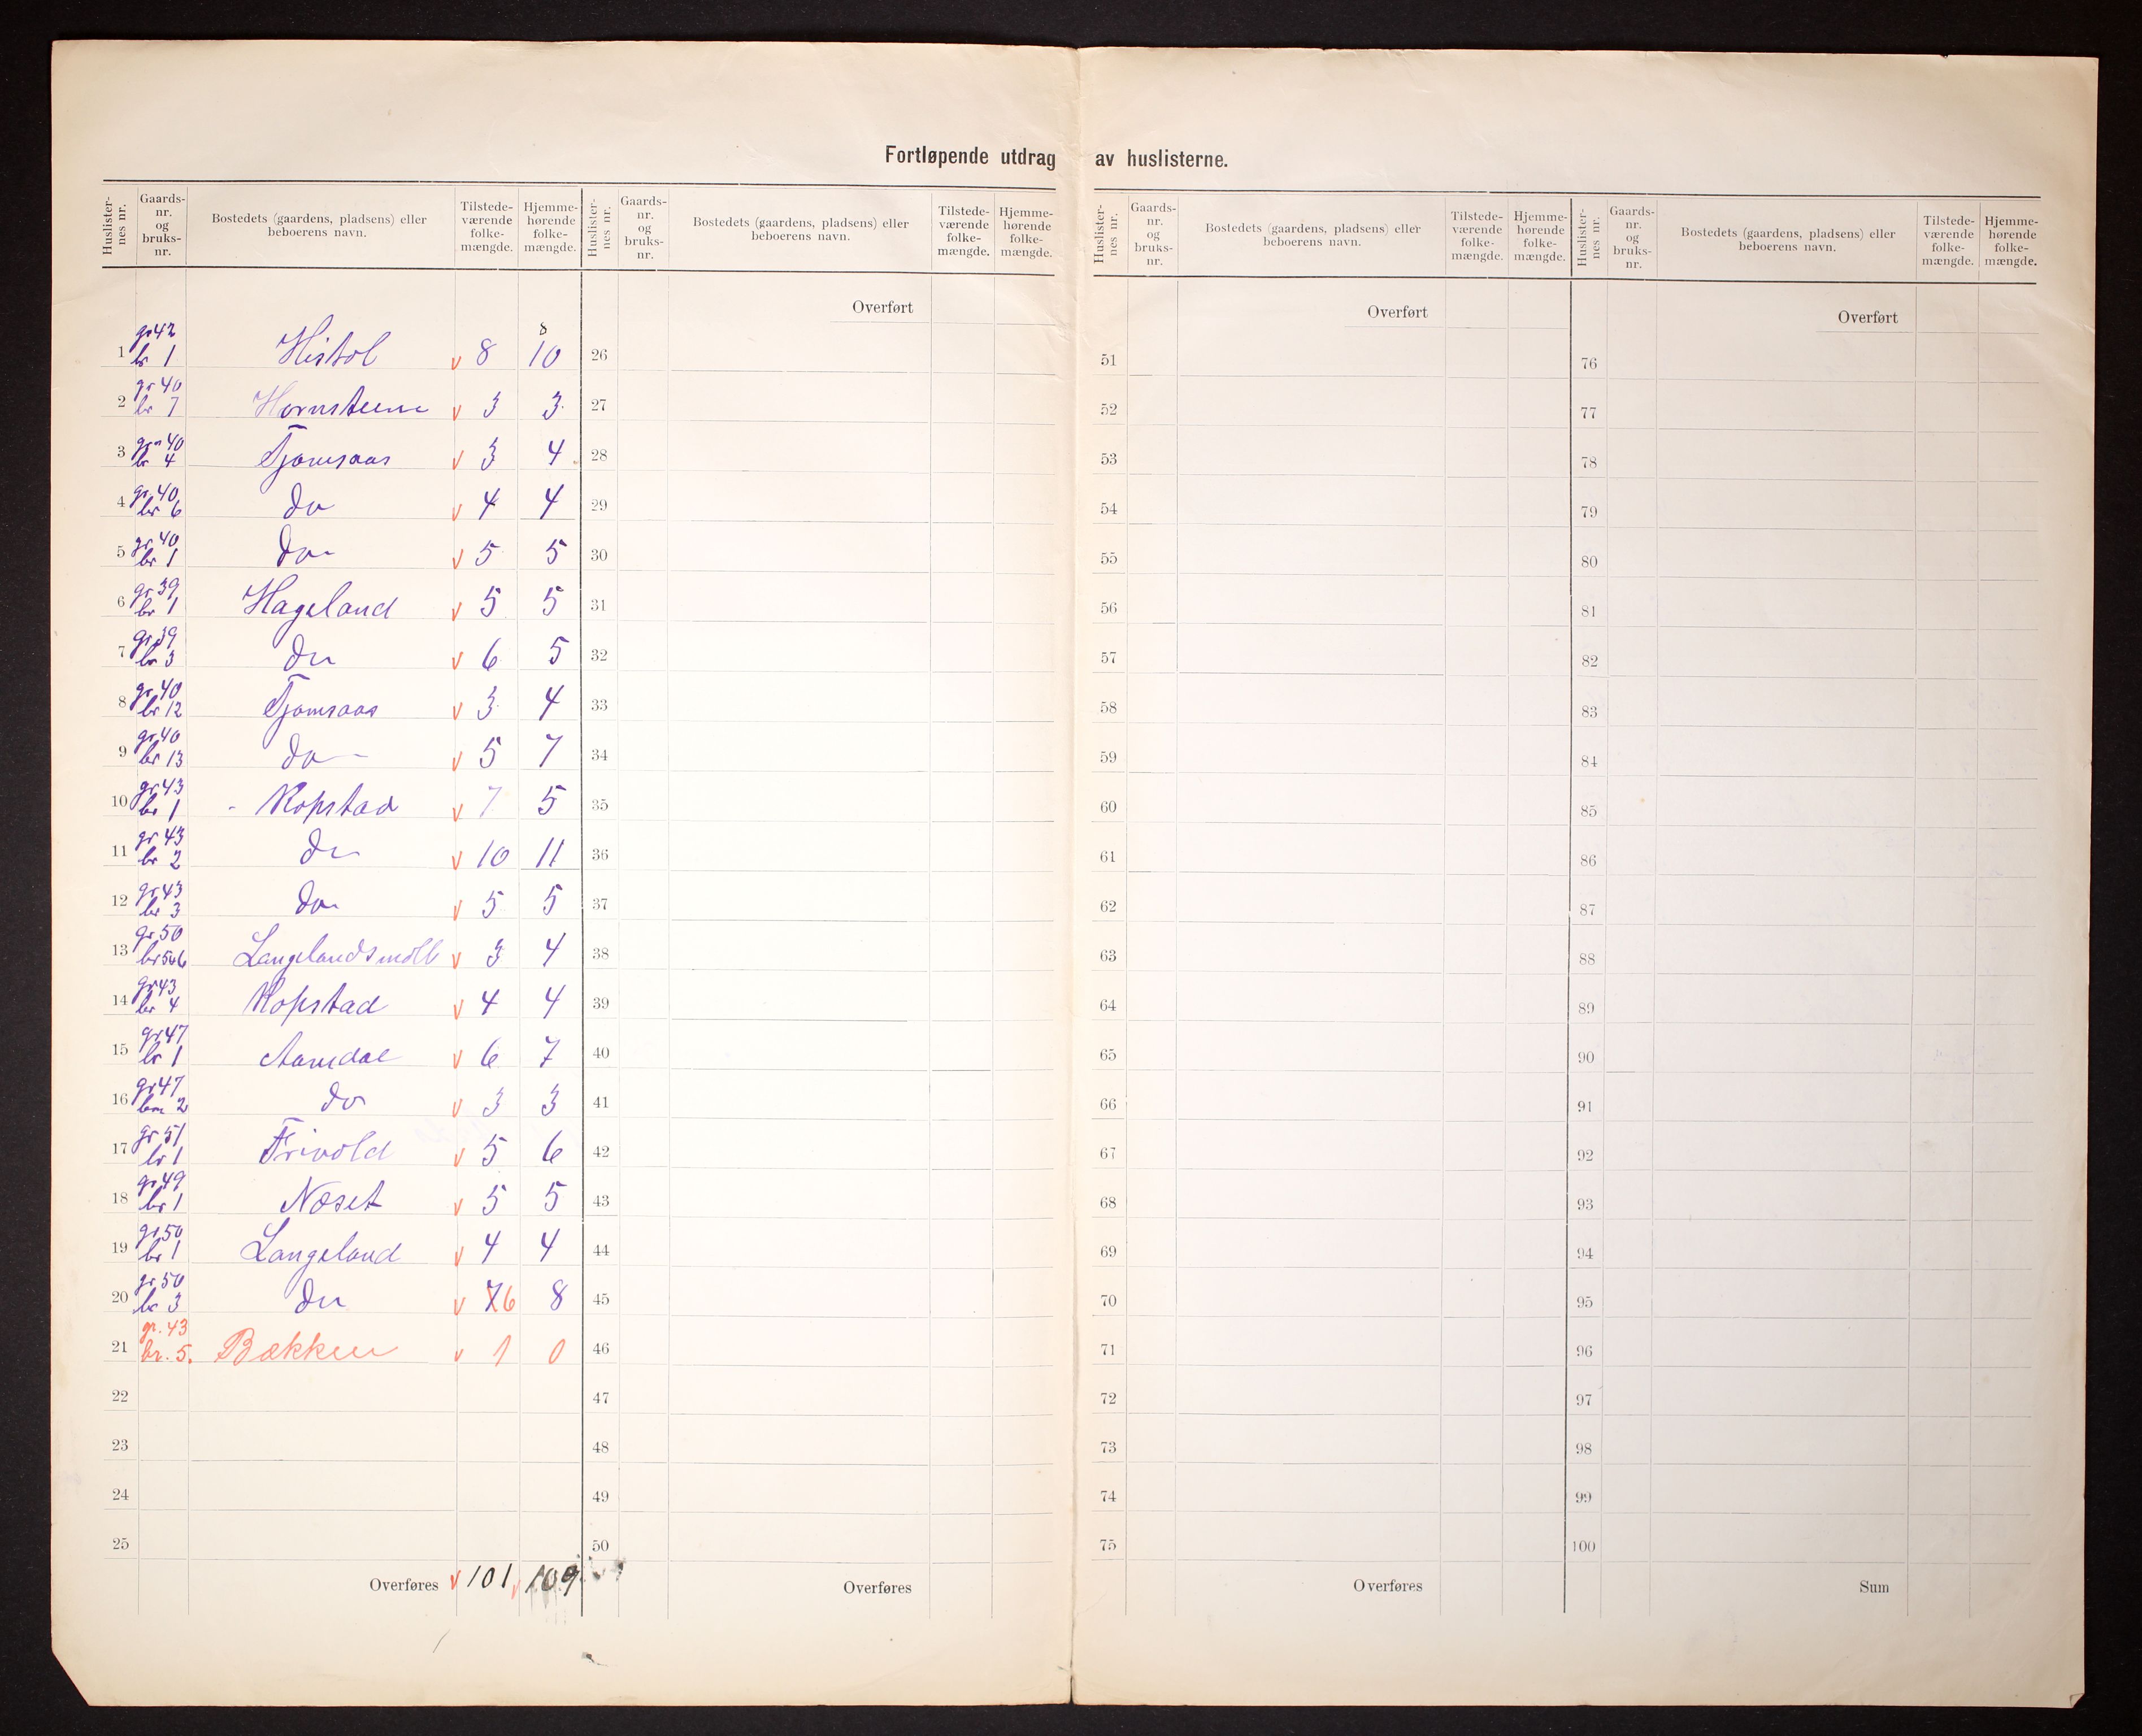 Fortløpende utdrag av huslisterne.
Huslister-nes nr. Gaards-nr. og bruks-nr. Bostedets (gaardens, pladsens) eller beboerens navn. Tilstede-værende folke-mængde. Hjemme-hørende folke-mængde.
Huslister-nes nr. Gaards-nr. og bruks-nr. Bostedets (gaardens, pladsens) eller beboerens navn. Tilstede-værende folke-mængde. Hjemme-hørende folke-mængde.
Huslister-nes nr. Gaards-nr. og bruks-nr. Bostedets (gaardens, pladsens) eller beboerens navn. Tilstede-værende folke-mængde. Hjemme-hørende folke-mængde.
Huslister-nes nr. Gaards-nr. og bruks-nr. Bostedets (gaardens, pladsens) eller beboerens navn. Tilstede-værende folke-mængde. Hjemme-hørende folke-mængde.
Overført Overført Overført
gr 42 8
1 br 1 Histol v 8 10 26 51 76
gr 40
2 br 7 Hornsteen v 3 3 27 52 77
gr 40
3 br 4 Tjomsaas v 3 4 28 53 78
gr 40
4 br 6 do v 4 4 29 54 79
gr 40
5 br 1 do v 5 5 30 55 80
gr 39
6 br 1 Hageland v 5 5 31 56 81
gr 39
7 br 3 do v 6 5 32 57 82
gr 40
8 br 12 Tjomsaas v 3 4 33 58 83
gr 40
9 br 13 do - v 5 7 34 59 84
gr 43
10 br 1 - Kopstad v 7 5 35 60 85
gr 43
11 br 2 do v 10 11 36 61 86
gr 43
12 br 3 do v 5 5 37 62 87
gr 50
13 br Langelandsmoll v 3 4 38 63 88
gr 43
14 br 4 Kopstad v 4 4 39 64 89
gr 47
15 br 1 Aamdal v 6 7 40 65 90
gr 47
16 br 2 do v 3 3 41 66 91
gr 51
17 br 1 Frivold v 5 6 42 67 92
gr 49
18 br 1 Næset v 5 5 43 68 93
gr 50
19 br 1 Langeland v 4 4 44 69 94
gr 50
20 br 3 do v 7 6 8 45 70 95
gr. 43
21 br. 5. Bækken v 1 0 46 71 96
22 47 72 97
23 48 73 98
24 49 74 99
25 50 75 100
Overføres v 101 v 109 Overføres Overføres Sum